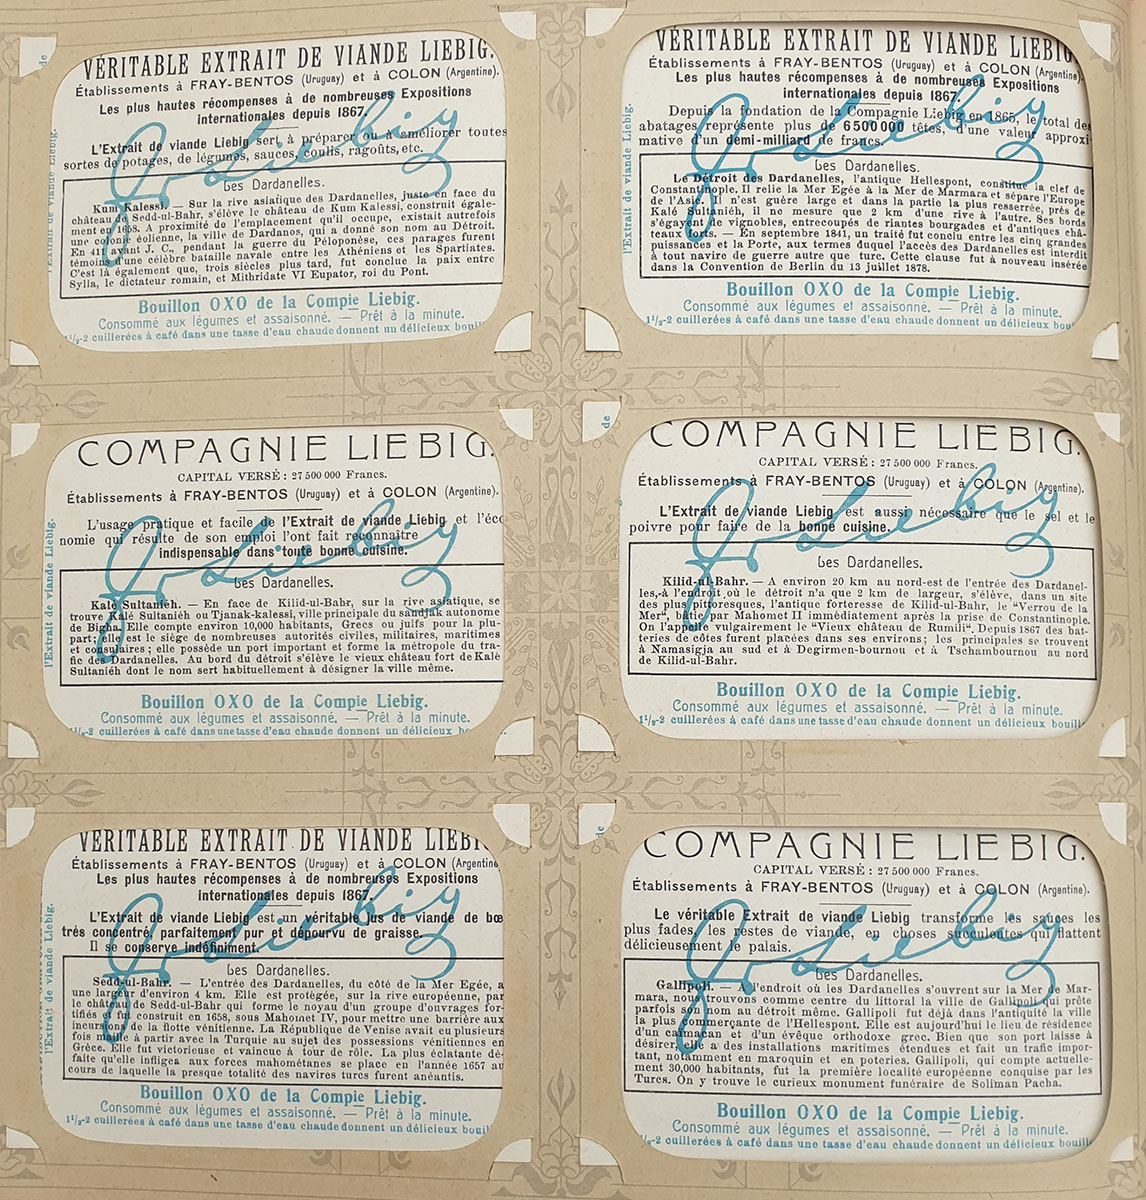 VÉRITABLE EXTRAIT DE VIANDE LIEBIG.
Établissements à FRAY-BENTOS (Uruguay) et à COLON (Argentine).
Les plus hautes récompenses à de nombreuses Expositions
internationales depuis 1867.
L'Extrait de viande Liebig sert à préparer ou à améliorer toutes
sortes de potages, de légumes, sauces, coulis, ragoûts, etc.
Les Dardanelles.
Kum Kalessi. — Sur la rive asiatique des Dardanelles, juste en face du
château de Sedd-ul-Bahr, s'élève le château de Kum Kalessi, construit égale-
ment en 1658. A proximité de l'emplacement qu'il occupe, existait autrefois
une colonie éolienne, la ville de Dardanos, qui a donné son nom au Détroit.
En 411 avant J. C., pendant la guerre du Péloponèse, ces parages furent
témoins d'une célèbre bataille navale entre les Athéniens et les Spartiates.
C'est là également que, trois siècles plus tard, fut conclue la paix entre
Sylla, le dictateur romain, et Mithridate VI Eupator, roi du Pont.
Bouillon OXO de la Compie Liebig.
Consommé aux légumes et assaisonné. — Prêt à la minute.
1½-2 cuillerées à café dans une tasse d'eau chaude donnent un délicieux boui
l'Extrait de viande Liebig.
de
J. v. Liebig
VÉRITABLE EXTRAIT DE VIANDE LIEBIG
Établissements à FRAY-BENTOS (Uruguay) et à COLON (Argentine)
Les plus hautes récompenses à de nombreuses Expositions
internationales depuis 1867.
Depuis la fondation de la Compagnie Liebig en 1865, le total des
abatages représente plus de 6500000 têtes, d'une valeur approxi-
mative d'un demi-milliard de francs.
Les Dardanelles.
Le Détroit des Dardanelles, l'antique Hellespont, constitue la clef de
Constantinople. Il relie la Mer Egée à la Mer de Marmara et sépare l'Europe
de l'Asie. Il n'est guère large et dans la partie la plus resserrée, près de
Kalé Sultaniéh, il ne mesure que 2 km d'une rive à l'autre. Ses bords
s'égayent de vignobles, entrecoupés de riantes bourgades et d'antiques châ-
teaux forts. — En septembre 1841, un traité fut conclu entre les cinq grandes
puissances et la Porte, aux termes duquel l'accès des Dardanelles est interdit
à tout navire de guerre autre que turc. Cette clause fut à nouveau insérée
dans la Convention de Berlin du 13 juillet 1878.
Bouillon OXO de la Compie Liebig.
Consommé aux légumes et assaisonné. — Prêt à la minute.
1½-2 cuillerées à café dans une tasse d'eau chaude donnent un délicieux bou
l'Extrait de viande Liebig.
J. v. Liebig
COMPAGNIE LIEBIG.
CAPITAL VERSÉ: 27 500 000 Francs.
Établissements à FRAY-BENTOS (Uruguay) et à COLON (Argentine).
L'usage pratique et facile de l'Extrait de viande Liebig et l'éco
nomie qui résulte de son emploi l'ont fait reconnaître
indispensable dans toute bonne cuisine.
Les Dardanelles.
Kalé Sultaniéh. — En face de Kilid-ul-Bahr, sur la rive asiatique, se
trouve Kalé Sultaniéh ou Tjanak-kalessi, ville principale du sandjak autonome
de Bigha. Elle compte environ 10,000 habitants, Grecs ou juifs pour la plu-
part; est le siège de nombreuses autorités civiles, militaires, maritimes
et consulaires; elle possède un port important et forme la métropole du tra-
fic des Dardanelles. Au bord du détroit s'élève le vieux château fort de Kalé
Sultaniéh dont le nom sert habituellement à désigner la ville même.
Bouillon OXO de la Compie Liebig.
Consommé aux légumes et assaisonné. — Prêt à la minute.
1½-2 cuillerées à café dans une tasse d'eau chaude donnent un délicieux bo
l'Extrait de viande Liebig.
J. v. Liebig
COMPAGNIE LIEBIG.
CAPITAL VERSÉ: 27 500 000 Francs.
Établissements à FRAY-BENTOS (Uruguay) et à COLON (Argentine).
L'Extrait de viande Liebig est aussi nécessaire que le sel et le
poivre pour faire de la bonne cuisine.
Les Dardanelles.
Kilid-ul-Bahr. — A environ 20 km au nord-est de l'entrée des Dardanel-
les, à l'endroit, où le détroit n'a que 2 km de largeur, s'élève, dans un site
des plus pittoresques, l'antique forteresse de Kilid-ul-Bahr, le "Verrou de la
Mer", bâtie par Mahomet II immédiatement après la prise de Constantinople.
On l'appelle vulgairement le "Vieux château de Rumili". Depuis 1867 des bat-
teries de côtes furent placées dans ses environs; les principales se trouvent
à Namasigja au sud et à Degirmen-bournou et à Tschambournou au nord
de Kilid-ul-Bahr.
Bouillon OXO de la Compie Liebig.
Consommé aux légumes et assaisonné. — Prêt à la minute.
1½-2 cuillerées à café dans une tasse d'eau chaude donnent un délicieux bouill
de
J. v. Liebig
VÉRITABLE EXTRAIT DE VIANDE LIEBI
Établissements à FRAY-BENTOS (Uruguay) et à COLON (Argentine
Les plus hautes récompenses à de nombreuses Expositions
internationales depuis 1867.
L'Extrait de viande Liebig est un véritable jus de viande de bœ
très concentré, parfaitement pur et dépourvu de graisse.
Il se conserve indéfiniment.
Les Dardanelles.
Sedd-ul-Bahr. — L'entrée des Dardanelles, du côté de la Mer Egée, a
une largeur d'environ 4 km. Elle est protégée, sur la rive européenne, par
le château de Sedd-ul-Bahr qui forme le noyau d'un groupe d'ouvrages for-
tifiés et fut construit en 1658, sous Mahonet IV, pour mettre une barrière aux
incursions de la flotte vénitienne. La République de Venise avait eu plusieurs
fois maille à partir avec la Turquie au sujet des possessions vénitiennes en
Grèce. Elle fut victorieuse et vaincue à tour de rôle. La plus éclatante dé-
faite qu'elle infligea aux forces mahométanes se place en l'année 1657 au
cours de laquelle la presque totalité des navires turcs furent anéantis.
Bouillon OXO de la Compie Liebig.
Consommé aux légumes et assaisonné. — Prêt à la minute.
1½-2 cuillerées à café dans une tasse d'eau chaude donnent un délicieux boui
l'Extrait de viande Liebig.
J. v. Liebig
COMPAGNIE LIEBIG.
CAPITAL VERSÉ: 27 500 000 Francs.
Établissements à FRAY-BENTOS (Uruguay) et à COLON (Argentine).
Le véritable Extrait de viande Liebig transforme les sauces les
plus fades, les restes de viande, en choses succulentes qui flattent
délicieusement le palais.
Les Dardanelles.
Gallipoli. — A l'endroit où les Dardanelles s'ouvrent sur la Mer de Mar-
mara, nous trouvons comme centre du littoral la ville de Gallipoli qui prête
parfois son nom au détroit même. Gallipoli fut déjà dans l'antiquité la ville
la plus commerçante de l'Hellespont. Elle est aujourd'hui le lieu de résidence
d'un caïmacan et d'un évêque orthodoxe grec. Bien que son port laisse à
désirer, elle a des installations maritimes étendues et fait un trafic impor-
tant, notamment en maroquin et en poteries. Gallipoli, qui compte actuelle-
ment 30,000 habitants, fut la première localité européenne conquise par les
Turcs. On y trouve le curieux monument funéraire de Soliman Pacha.
Bouillon OXO de la Compie Liebig.
Consommé aux légumes et assaisonné. — Prêt à la minute.
-2 cuillerées à café dans une tasse d'eau chaude donnent un délicieux bouill
de
J. v. Liebig